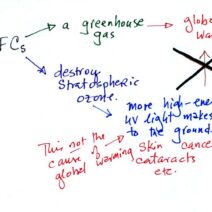 a greenhouse
gas
globe
wa
FCs
destroy
Stratospheric
ozone.
more high-ene
UV light makes
to the ground.
This not the
cause of
global warming
skin cance
cataracts
etc.